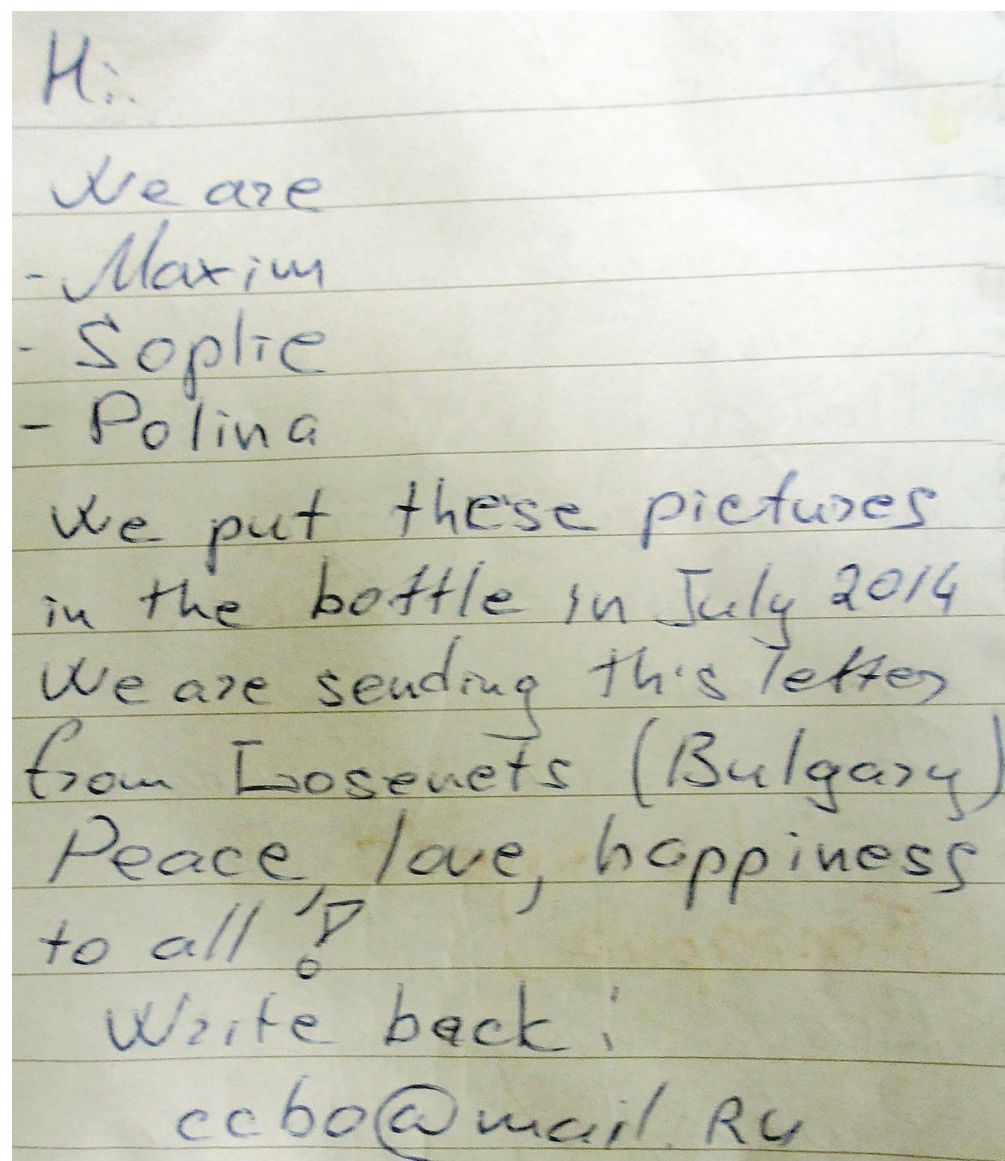 Hi.
We are
- Maxim
- Sophie
- Polina
We put these pictures
in the bottle in July 2014
We are sending this letter
from Losenets (Bulgary)
Peace, love, happiness
to all!
Write back:
ccbo@mail.Ru